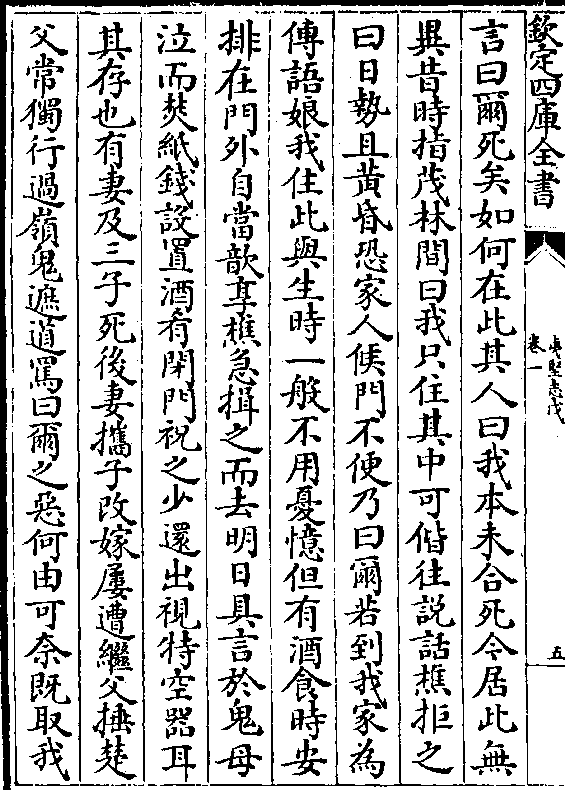 欽定四庫全書
夷堅志戊
卷一
五
言曰爾死矣如何在此其人曰我本未合死今居此無
異昔時指茂林間曰我只住其中可偕往説話樵拒之
曰日勢且黄昏恐家人候門不便乃曰爾若到我家為
傳語娘我住此與生時一般不用憂憶但有酒食時安
排在門外自當歆享樵急揖之而去明日具言於鬼母
泣而焚紙錢設置酒肴閉門祝之少還出視特空器耳
其存也有妻及三子死後妻攜子改嫁屢遭繼父捶楚
父常獨行過嶺鬼遮道罵曰爾之惡何由可奈既取我